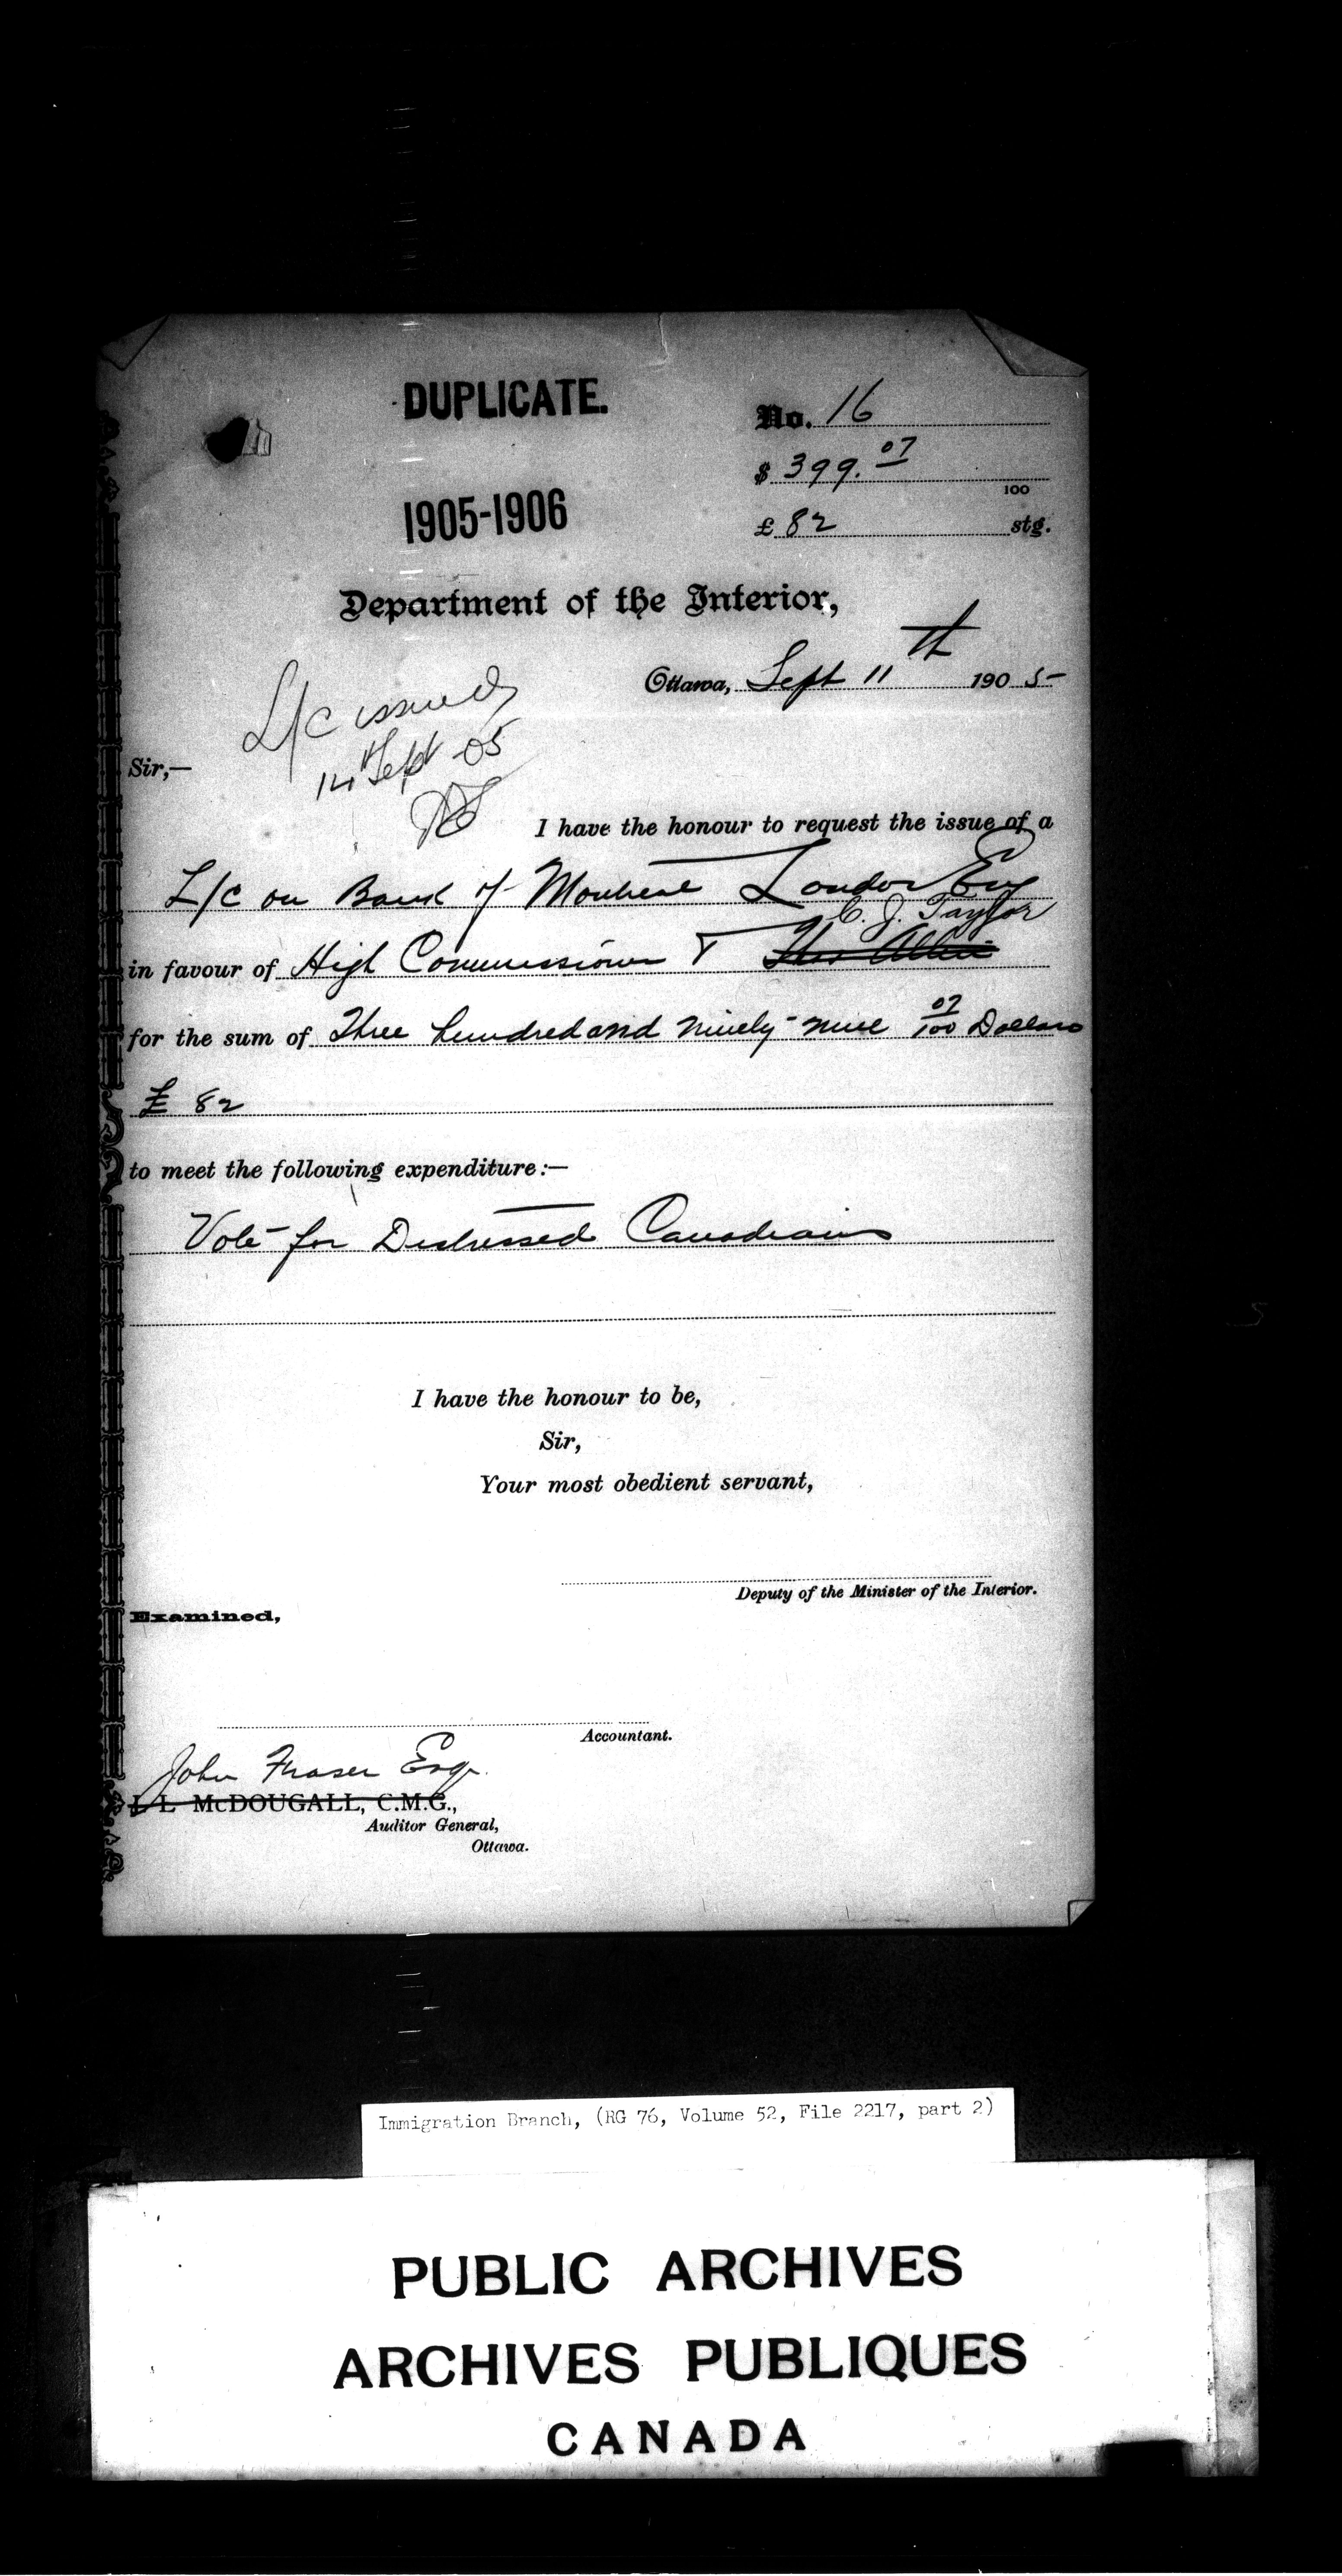 DUPLICATE.
No. 16
$ 399. 07
100
£ 82 stg.
1905-1906
Department of the Interior,
Ottawa, Sept 11th 1905
L/c issued
14 Sept 05
Sir,—
I have the honour to request the issue of a
L/c on Bank of Montreal London Eng
C. J. Taylor
in favour of High Commissioner &
for the sum of Three hundred and ninety-nine 07/100 Dollars
£ 82
to meet the following expenditure:—
Vote for Distressed Canadians
I have the honour to be,
Sir,
Your most obedient servant,
Deputy of the Minister of the Interior.
Examined,
Accountant.
John Fraser Esq.
J. L. McDOUGALL, C.M.G.,
Auditor General,
Ottawa.
Immigration Branch, (RG 76, Volume 52, File 2217, part 2)
PUBLIC ARCHIVES
ARCHIVES PUBLIQUES
CANADA